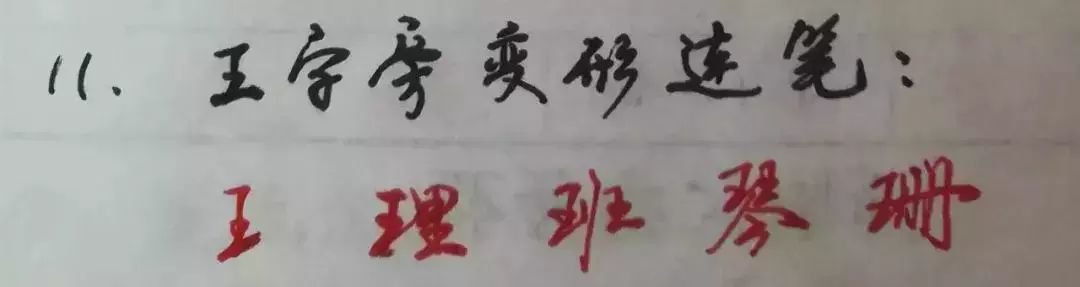 11. 王字旁变形连笔：
王 理 班 琴 珊